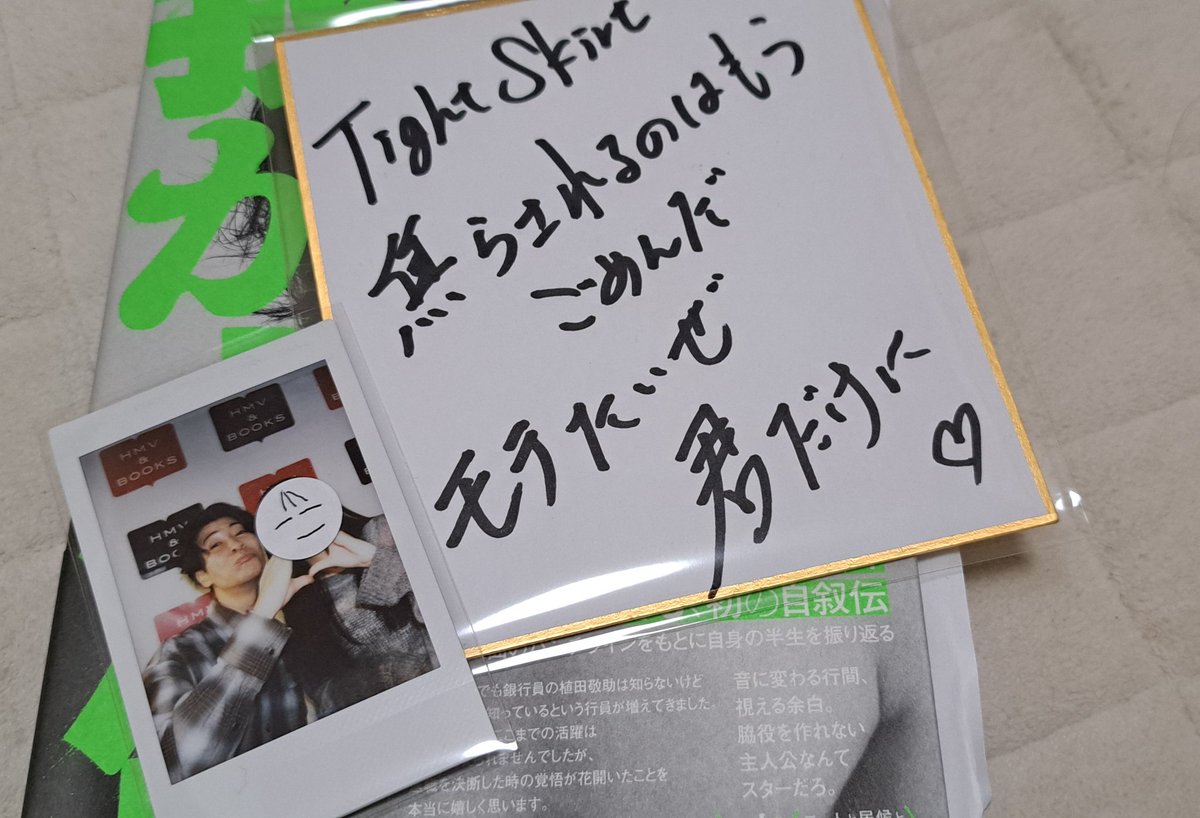 Tight Skirt
焦らされるのはもう
ごめんだ
モテたいぜ
君だけに
HMV & BOOKS
HMV & BOOKS
HMV
初の自叙伝
をもとに自身の半生を振り返る
でも銀行員の植田敬助は知らないけど
知っているという行員が増えてきました。
ここまでの活躍は
れませんでしたが、
を決断した時の覚悟が花開いたことを
本当に嬉しく思います。
音に変わる行間、
視える余白。
脇役を作れない
主人公なんて
スターだろ。